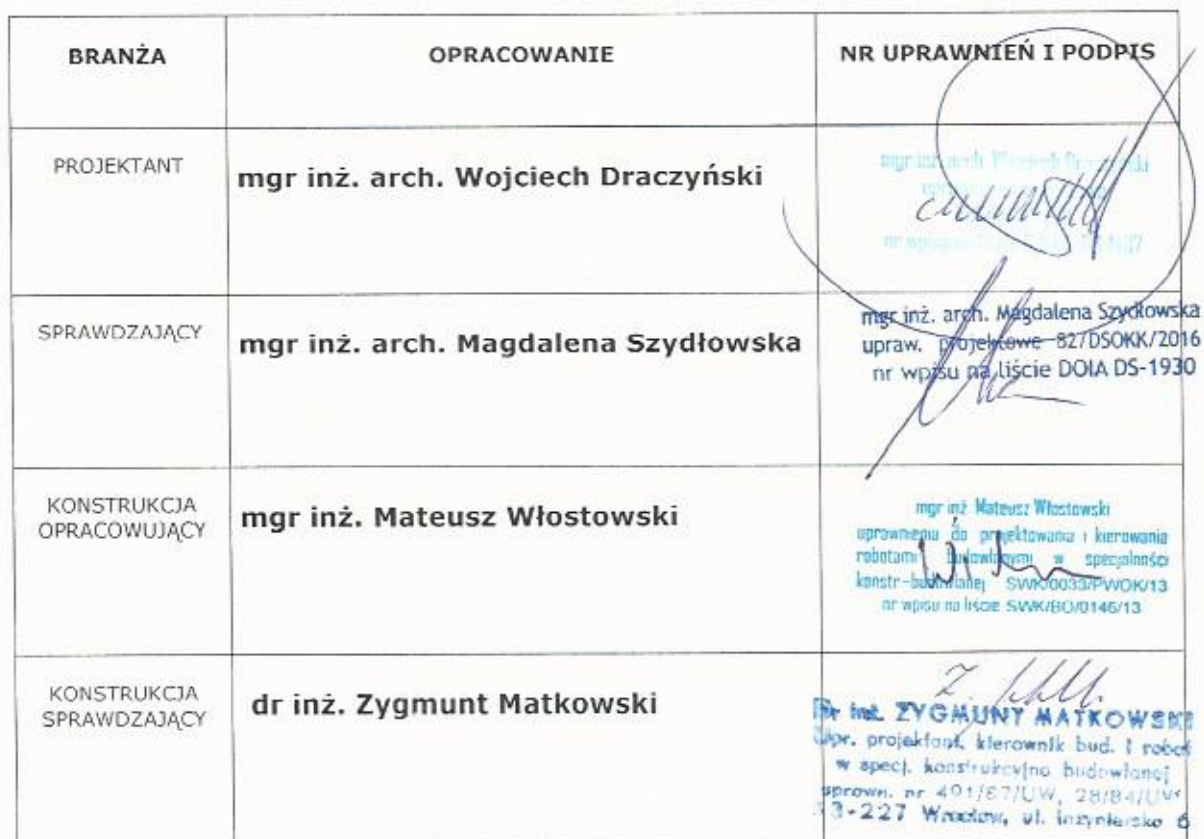 BRANŻA
OPRACOWANIE
NR UPRAWNIEŃ I PODPIS
PROJEKTANT
mgr inż. arch. Wojciech Draczyński
mgr inż. arch. Wojciech
SPRAWDZAJĄCY
mgr inż. arch. Magdalena Szydłowska
mgr inż. arch. Magdalena Szydłowska
upraw. projektowe 827/DSOKK/2016
nr wpisu na liście DOIA DS-1930
KONSTRUKCJA
OPRACOWUJĄCY
mgr inż. Mateusz Włostowski
mgr inż Mateusz Włostowski
uprawnienia do projektowania i kierowania
robotami budowlanymi w specjalności
konstr-budowlanej SWK/0033/PWOK/13
nr wpisu na liście SWK/BO/0146/13
KONSTRUKCJA
SPRAWDZAJĄCY
dr inż. Zygmunt Matkowski
Dr inż. ZYGMUNT MATKOWSKI
Upr. projektant, kierownik bud. i robót
w specj. konstrukcyjno budowlanej
uprawn. nr 491/87/UW, 28/84/UW
53-227 Wrocław, ul. Inżynierska 6